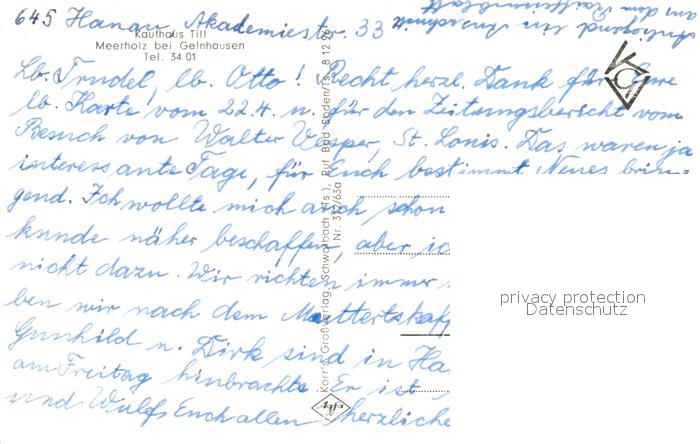 645 Hanau Akademiestr. 33
Kaufhaus Till
Meerholz bei Gelnhausen
Tel. 34 01
Lb. Trudel, lb. Otto! Recht herzl. Dank für Eure
lb. Karte vom 22.4. u. für den Zeitungsbericht vom
Besuch von Walter Vesper, St. Louis. Das waren ja
interessante Tage, für Euch bestimmt Neues brin-
gend. Ich wollte mich auch schon
kunde näher beschaffen, aber
nicht dazu. Wir richten immer
ben wir nach dem
Gunhild u. Dirk sind in Ha
am Freitag hinbrachte. Er ist
und Wulfs Euch allen herzliche
Korr's Großverlag, Schwalbach (Ts.), Ruf Bad Soden/Ts. 8 12 96
Nr. 312/63a
privacy protection
Datenschutz